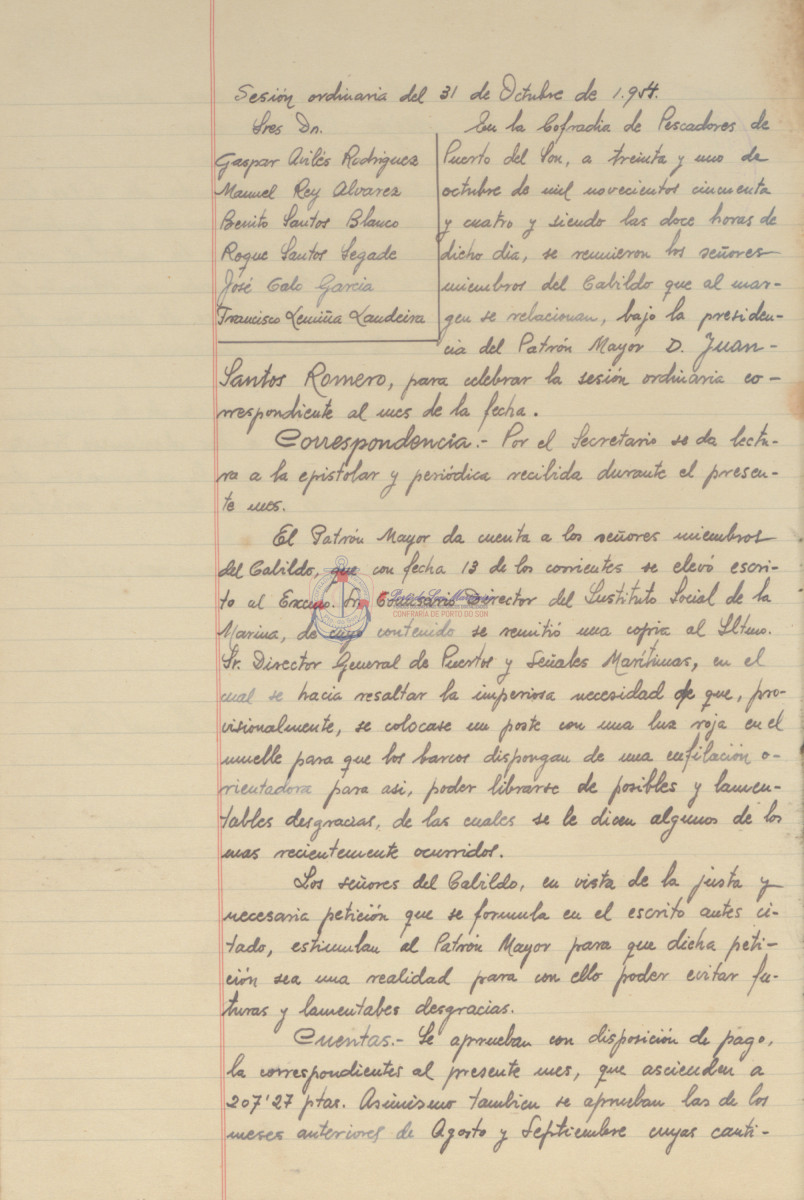 Sesión ordinaria del 31 de Octubre de 1.954.
Sres Dn.
Gaspar Avilés Rodriguez
Manuel Rey Alvarez
Benito Santos Blanco
Roque Santos Segade
José Calo Garcia
Francisco Lemiña Landeira
En la Cofradia de Pescadores de
Puerto del Son, a treinta y uno de
octubre de mil novecientos cincuenta
y cuatro y siendo las doce horas de
dicho dia, se reunieron los señores
miembros del Cabildo que al mar-
gen se relacionan, bajo la presiden-
cia del Patrón Mayor D. Juan-
Santos Romero, para celebrar la sesión ordinaria co-
rrespondiente al mes de la fecha.
Correspondencia.- Por el Secretario se da lectu-
ra a la epistolar y periódica recibida durante el presen-
te mes.
El Patrón Mayor da cuenta a los señores miembros
del Cabildo, que con fecha 13 de los corrientes se elevó escri-
to al Excmo. Sr. Comisario Director del Instituto Social de la
CONFRARIA DE PORTO DO SON
Marina, de cuyo contenido se remitió una copia al Iltmo.
Sr. Director General de Puertos y Señales Marítimas, en el
cual se hacia resaltar la imperiosa necesidad de que, pro-
visionalmente, se colocase un poste con una luz roja en el
muelle para que los barcos dispongan de una enfilación o-
rientadora para asi, poder librarse de posibles y lamen-
tables desgracias, de las cuales se le dicen algunos de los
mas recientemente ocurridos.
Los señores del Cabildo, en vista de la justa y
necesaria petición que se formula en el escrito antes ci-
tado, estimulan al Patrón Mayor para que dicha peti-
ción sea una realidad para con ello poder evitar fu-
turas y lamentabes desgracias.
Cuentas.- Se aprueban con disposición de pago,
la correspondientes al presente mes, que ascienden a
207'27 ptas. Asimismo tambien se aprueban las de los
meses anteriores de Agosto y Septiembre cuyas canti-